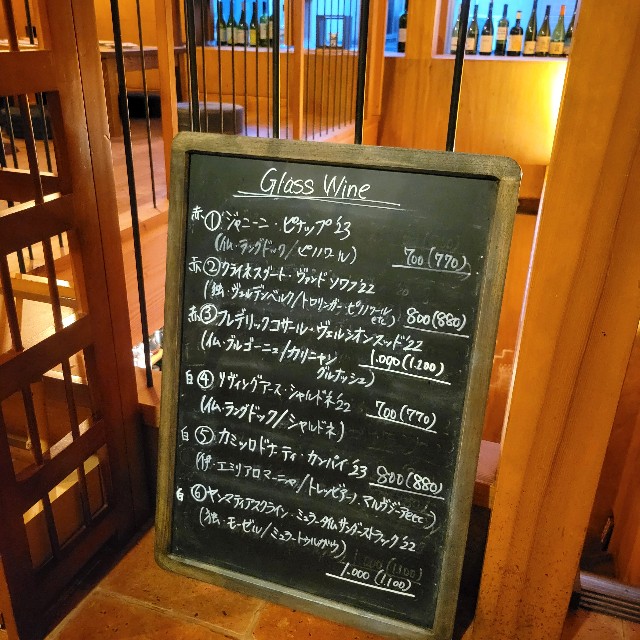 Glass Wine
赤 ① ジャニーン・ピケップ '23
(仏・ラングドック/ピノノワール) 700(770)
赤 ② クライネスグート・ヴァンド ソワフ '22
(独・ヴュルテンベルク/トロリンガー・ピノノワール etc) 800(880)
赤 ③ フレデリックコサール・ヴェルシオンスッド '22
(仏・ブルゴーニュ/カリニャン グルナッシュ) 1.000(1.100)
白 ④ リヴィングアース・シャルドネ '22
(仏・ラングドック/シャルドネ) 700(770)
白 ⑤ カミッロドナティ・カンパイ '23
(伊・エミリアロマーニャ/トレッビアーノ、マルヴァジーア etc) 800(880)
白 ⑥ ヤンマティアスクライン・ミュラータイムサンダーストラック '22
(独・モーゼル/ミュラートゥルガウ)
1.000(1.100)